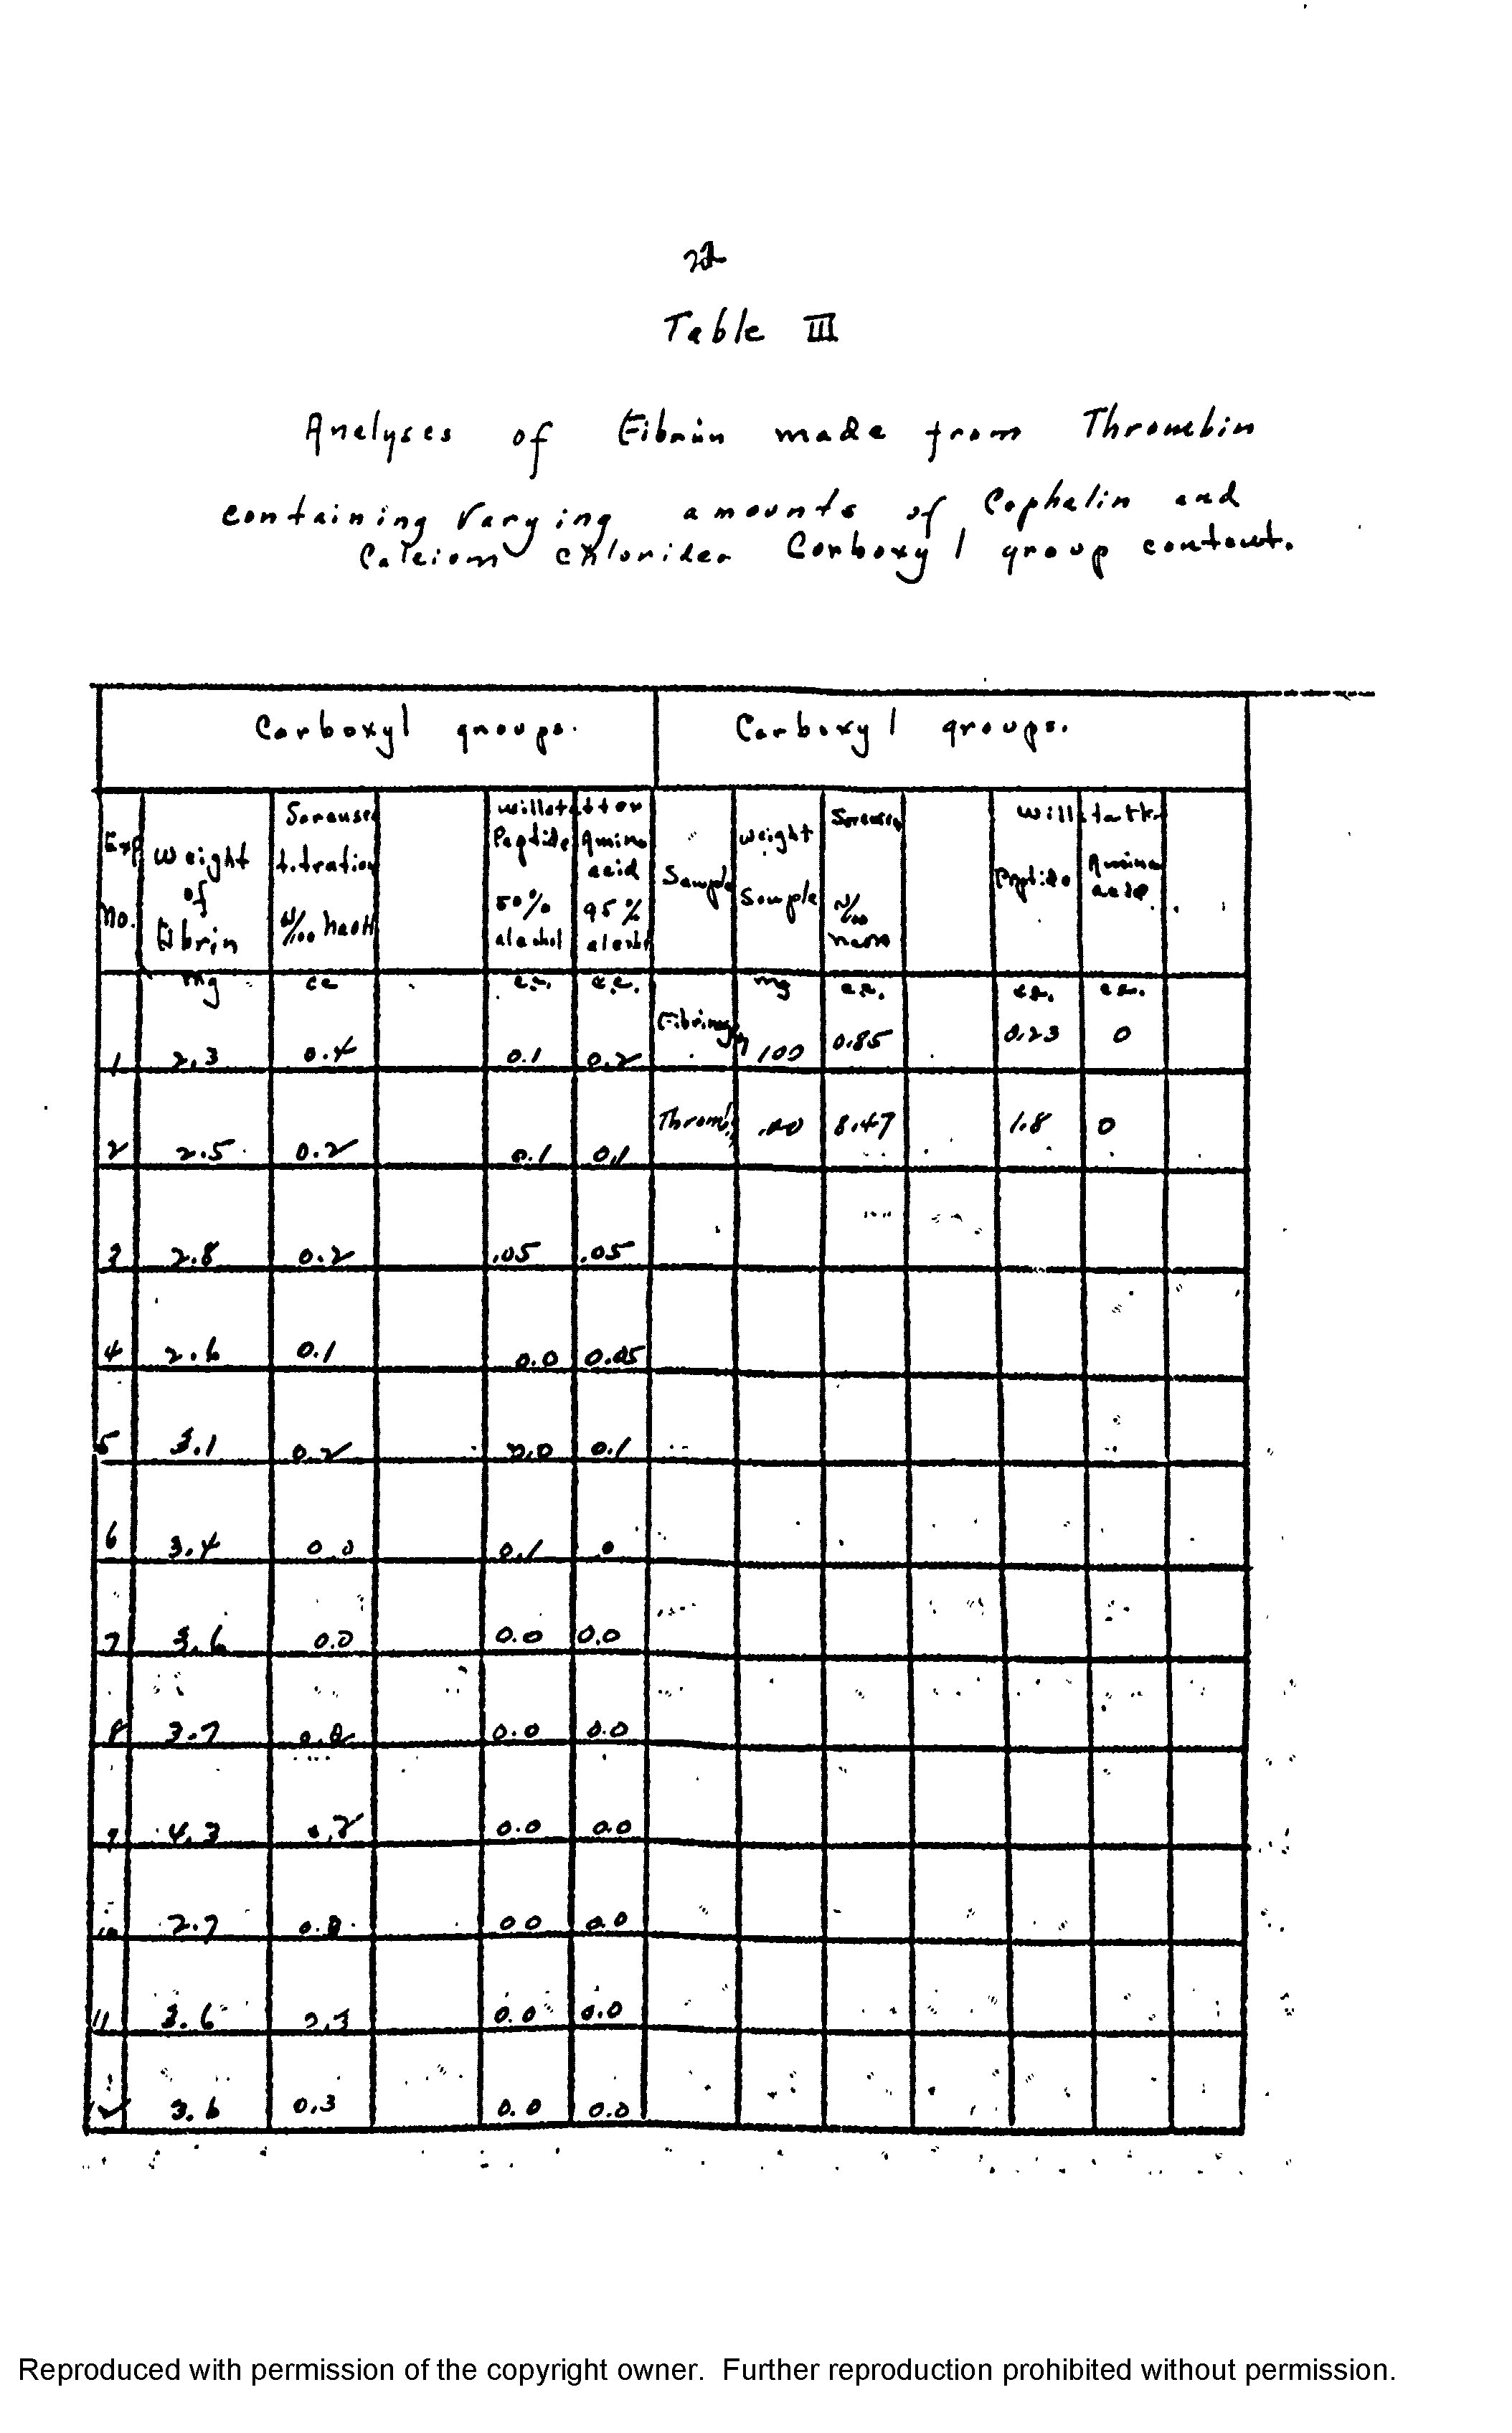 22
Table III
Analyses of Fibrin made from Thrombin
containing varying amounts of Cephalin and
Calcium chloride. Carboxyl group content.
Carboxyl groups. Carboxyl groups.
Exp No. Weight of Fibrin Sorensen titration N/100 NaOH Willstatter Peptide 50% alcohol Amino acid 95% alcohol Sample Weight Sample Sorensen N/100 NaOH Willstatter Peptide Amino acid
mg cc c.c. c.c. mg c.c. c.c. c.c.
1 2.3 0.4 0.1 0.2 Fibrinogen 100 0.85 0.23 0
2 2.5 0.2 0.1 0.1 8.47 1.8 0
3 2.8 0.2 .05 .05
4 2.6 0.1 0.0 0.05
5 3.1 0.2 0.0 0.1
6 3.4 0.0 0.1 .0
7 3.6 0.0 0.0 0.0
8 3.7 0.0 0.0
9 4.3 0.0 0.0
10 2.7 0.0 0.0 0.0
11 3.6 0.0 0.0
12 3.6 0.3 0.0 0.0
Reproduced with permission of the copyright owner. Further reproduction prohibited without permission.